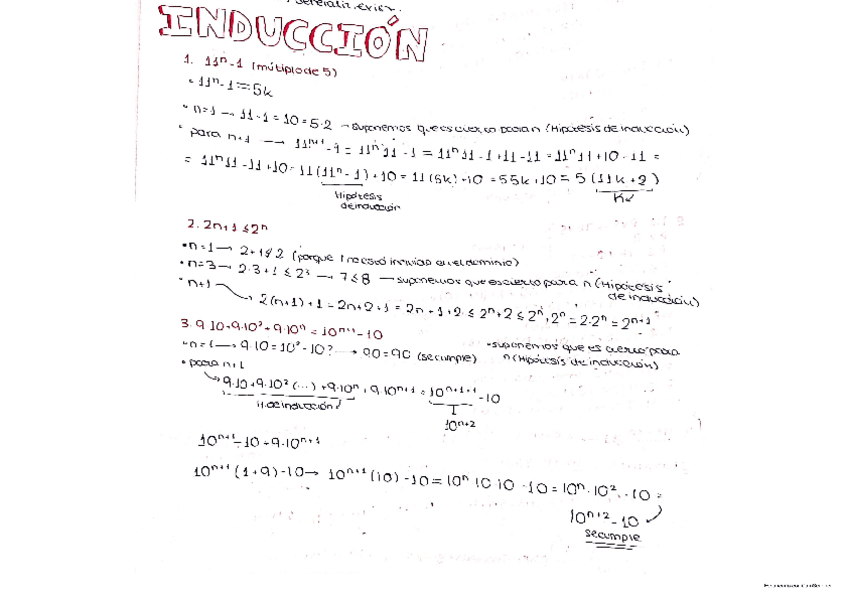 INDUCCIÓN
1. 11ⁿ-1 (múltiplo de 5)
• 11ⁿ-1 = 5k
• n=1 → 11-1 = 10 = 5·2 → suponemos que es cierto para n (Hipótesis de inducción)
• para n+1 → 11ⁿ⁺¹-1 = 11ⁿ11-1 = 11ⁿ11-1+11-11 = 11ⁿ11+10-11 =
= 11ⁿ11-11+10 = 11(11ⁿ-1)+10 = 11(5k)+10 = 55k+10 = 5(11k+2)
Hipótesis
de inducción
2. 2n+1 ≤ 2ⁿ
• n=1 → 2+1 ≰ 2 (porque 1 no está incluido en el dominio)
• n=3 → 2·3+1 ≤ 2³ → 7 ≤ 8 → suponemos que es cierto para n (Hipótesis
de inducción)
• n+1
2(n+1)+1 = 2n+2+1 = 2n+1+2 ≤ 2ⁿ+2 ≤ 2ⁿ+2ⁿ = 2·2ⁿ = 2ⁿ⁺¹
3. 9·10+9·10²+9·10ⁿ = 10ⁿ⁺¹-10
• n=1 → 9·10 = 10²-10? → 90=90 (se cumple)
• suponemos que es cierto para
n (Hipótesis de inducción)
• para n+1
9·10+9·10² (...) +9·10ⁿ+9·10ⁿ⁺¹ = 10ⁿ⁺¹⁺¹-10
H. de inducción
10ⁿ⁺²
10ⁿ⁺¹-10+9·10ⁿ⁺¹
10ⁿ⁺¹(1+9)-10 → 10ⁿ⁺¹(10)-10 = 10ⁿ·10·10-10 = 10ⁿ·10²-10 =
10ⁿ⁺²-10
se cumple